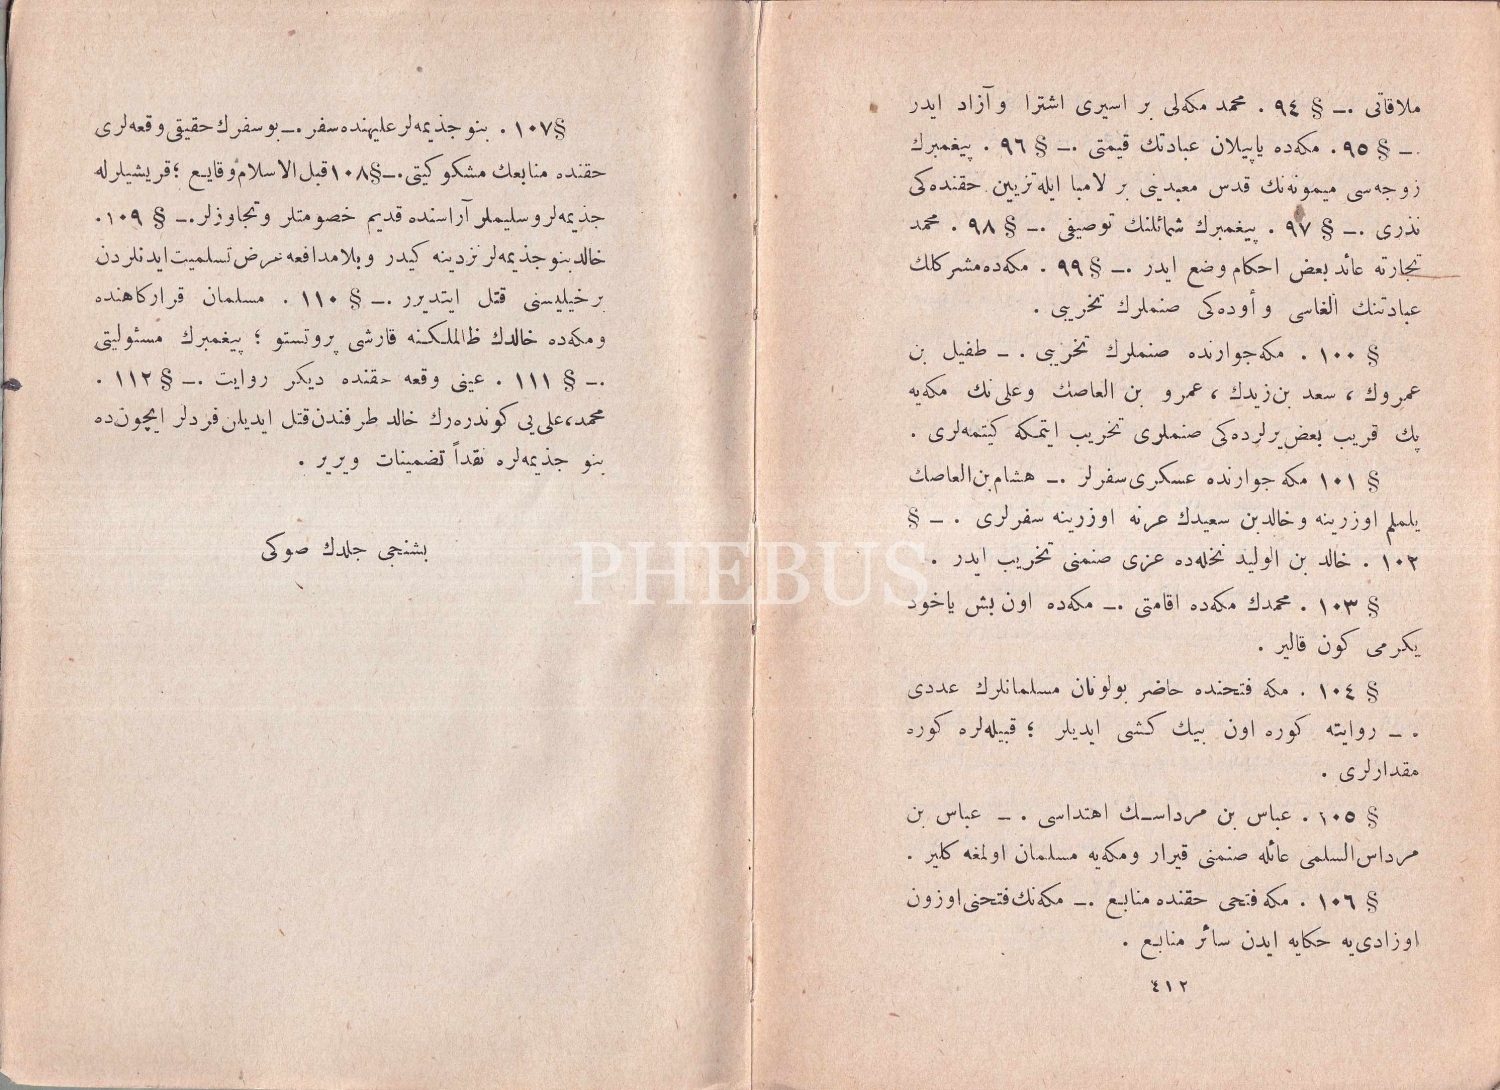 ملاقاتی .ـ § ٩٤ . محمد مكه‌لی بر اسیری اشترا و آزاد ایدر
.ـ § ٩٥ . مكه‌ده یاپیلان عبادتك قیمتی .ـ § ٩٦ . پیغمبرك
زوجه‌سی میمونه‌نك قدس معبدینی بر لامبا ایله تزیین حقنده‌كی
نذری .ـ § ٩٧ . پیغمبرك شمائلنك توصیفی .ـ § ٩٨ . محمد
تجارته عائد بعض احكام وضع ایدر .ـ § ٩٩ . مكه‌ده مشركلك
عبادتنك الغاسی و أوده‌كی صنملرك تخریبی .
§ ١٠٠ . مكه جوارنده صنملرك تخریبی . ـ طفیل بن
عمروك ، سعد بن زیدك ، عمرو بن العاصك وعلی نك مكه‌یه
پك قریب بعض یرلرده‌كی صنملری تخریب ایتمكه كیتمه‌لری .
§ ١٠١ مكه جوارنده عسكری سفرلر .ـ هشام بن العاصك
یلملم اوزرینه وخالدبن سعیدك عرنه اوزرینه سفرلری . ـ §
١٠٢ . خالد بن الولید نخله‌ده عزی صنمنی تخریب ایدر .
§ ١٠٣ . محمدك مكه‌ده اقامتی .ـ مكه‌ده اون بش یاخود
یكرمی كون قالیر .
§ ١٠٤ . مكه فتحنده حاضر بولونان مسلمانلرك عددی
. ـ روایته كوره اون بیك كشی ایدیلر ؛ قبیله‌لره كوره
مقدارلری .
§ ١٠٥ . عباس بن مرداسك اهتداسی . ـ عباس بن
مرداس السلمی عائله صنمنی قیرار ومكه‌یه مسلمان اولمغه كلیر .
§ ١٠٦ . مكه فتحی حقنده منابع .ـ مكه‌نك فتحنی اوزون
اوزادی‌یه حكایه ایدن سائر منابع .
٤١٢
§ ١٠٧ . بنو جذیمه‌لر علیهنده سفر .ـ بو سفرك حقیقی وقعه‌لری
حقنده منابعك مشكوكیتی.ـ § ١٠٨ قبل الاسلام وقایع ؛ قریشیلرله
جذیمه‌لر و سلیملر آراسنده قدیم خصومتلر وتجاوزلر.ـ § ١٠٩ .
خالد بنو جذیمه‌لر نزدینه كیدر وبلا مدافعه عرض تسلمیت ایدنلردن
بر خیلیسنی قتل ایتدیرر .ـ § ١١٠ . مسلمان قراركاهنده
ومكه‌ده خالدك ظالملكنه قارشی پروتستو ؛ پیغمبرك مسئولیتی
.ـ § ١١١ . عینی وقعه حقنده دیكر روایت .ـ § ١١٢ .
محمد، علی یی كوندره‌رك خالد طرفندن قتل ایدیلن فردلر ایچون ده
بنو جذیمه‌لره نقداً تضمینات ویریر .
بشنجی جلدك صوكی
PHEBUS